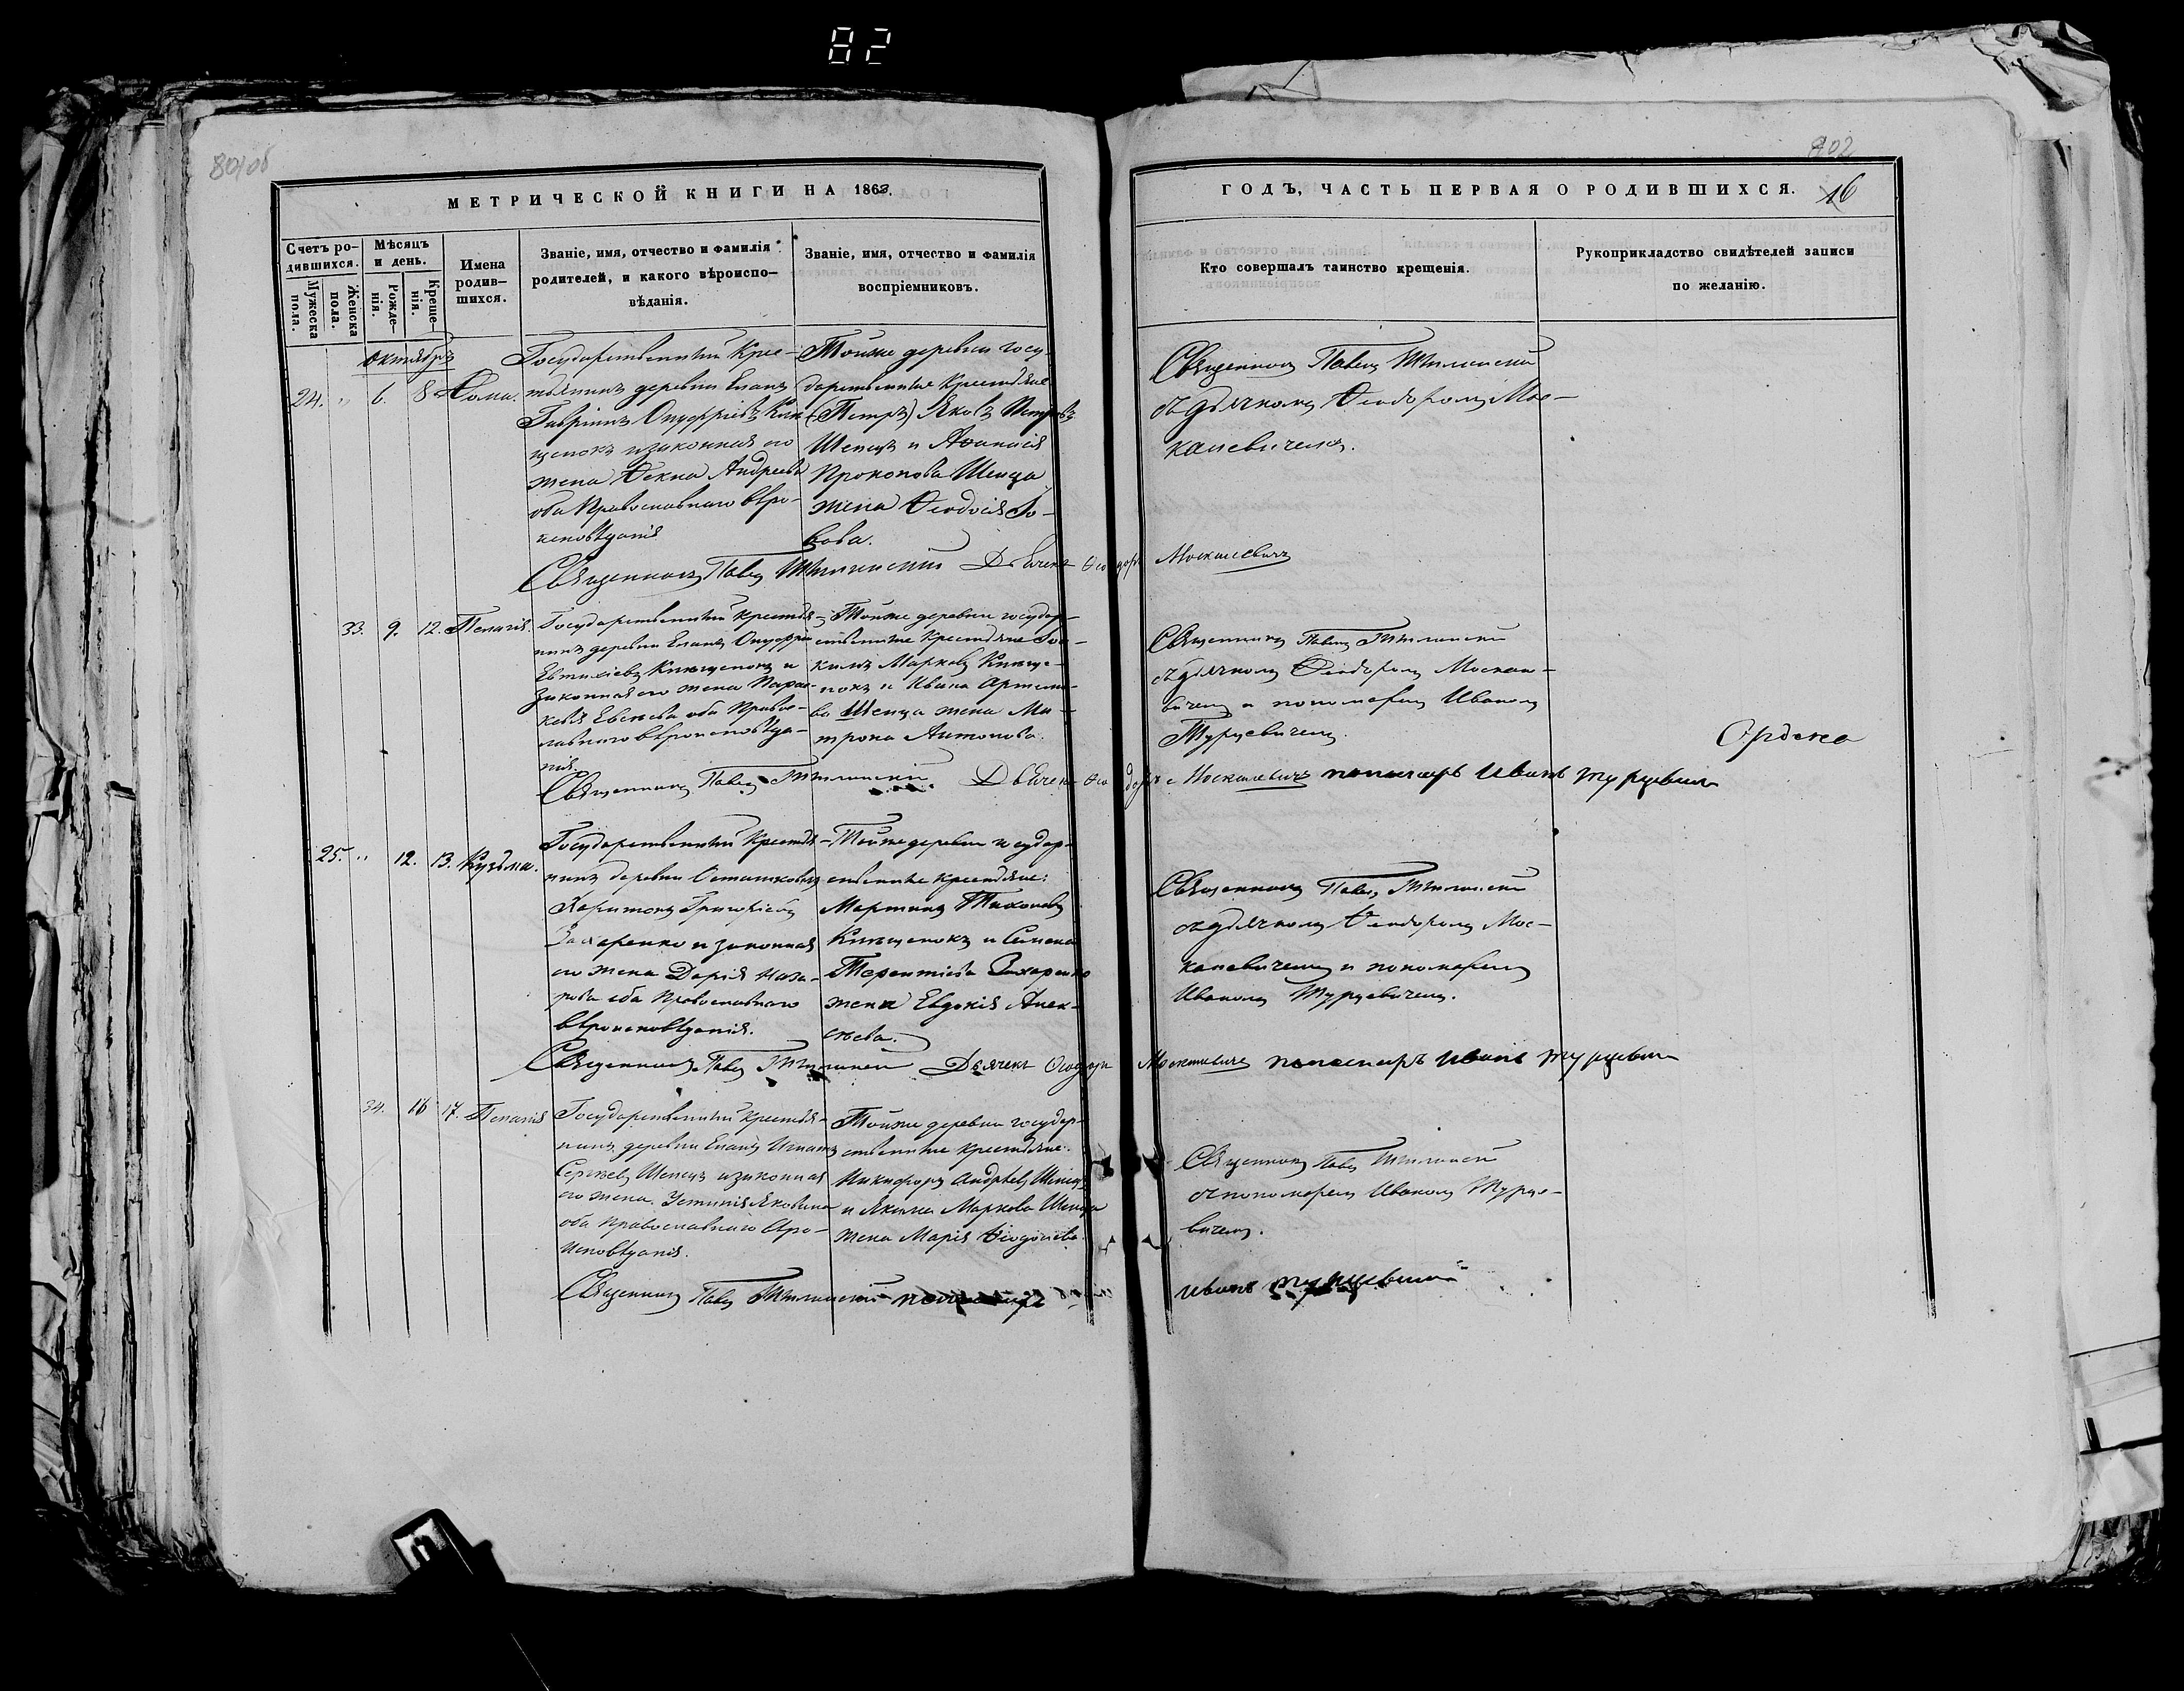 82
80/об
802
МЕТРИЧЕСКОЙ КНИГИ НА 1863.
Счетъ ро-
дившихся.
Мужеска
пола.
Женска
пола.
Мѣсяцъ
и день.
Рожде-
нія.
Креще-
нія.
Имена
родив-
шихся.
Званіе, имя, отчество и фамилія
родителей, и какого вѣроиспо-
вѣданія.
Званіе, имя, отчество и фамилія
воспріемниковъ.
ГОДЪ, ЧАСТЬ ПЕРВАЯ О РОДИВШИХСЯ.
16
Кто совершалъ таинство крещенія.
Рукоприкладство свидѣтелей записи
по желанію.
Октябрь
24. " 6. 8 Ѳома.
Государственный Крес-
тьянинъ деревни
Гавріилъ Онуфріевъ
щенокъ и законная его
жена Ѳекла Андреева
оба Православнаго вѣро-
исповѣданія
Тойже деревни госу-
дарственные Крестьяне
(Петръ) Яковъ Петровъ
Шепецъ и Аѳанасія
Прокопова Шепца
жена Ѳеодосія
Священникъ Павелъ
съ дьячкомъ Ѳеодоромъ Мос-
калевичемъ.
Священникъ Павелъ Дьячекъ Ѳеодоръ Москалевичъ
33. 9. 12. Пелагія.
Государственный крестья-
нинъ деревни Онуфрій
Евтихіевъ и
законная его жена Парас-
кевія Евсѣева оба Правос-
лавнаго вѣроисповѣда-
нія.
Тойже деревни государ-
ственные Крестьяне Іоа-
кимъ Марковъ Клеще-
нокъ и Ивана Артемо-
ва Шепца жена Ма-
трона Антонова.
Священникъ Павелъ
съ дьячкомъ Ѳеодоромъ Москале-
вичемъ и пономаремъ Иваномъ
Турцевичемъ.
Священникъ Павелъ Дьячекъ Ѳеодоръ Москалевичъ пономарь Иванъ Турцевичъ
25. " 12. 13. Кузьма.
Государственный Крестья-
нинъ деревни Осташковичъ
Харитонъ Григоріевъ
Захаренко и законная
его жена Дарія Наза-
рова оба Православнаго
вѣроисповѣданія.
Тойже деревни государ-
ственные крестьяне:
Мартинъ Тихоновъ
Клещенокъ и Семена
Терентіева Захаренко
жена Евдокія Алек-
сѣева.
Священникъ Павелъ
съ дьячкомъ Ѳеодоромъ Мос-
калевичемъ и пономаремъ
Иваномъ Турцевичемъ.
Священникъ Павелъ Дьячекъ Ѳеодоръ Москалевичъ пономарь Иванъ Турцевичъ
34. 16 17. Пелагія
Государственный крестья-
нинъ деревни Игнатъ
Сергѣевъ Шепецъ и законная
его жена Устинія Яковлева
оба Православнаго вѣро-
исповѣданія.
Тойже деревни государ-
ственные крестьяне:
Никифоръ Андреевъ Шепецъ
и Якима Маркова Шепца
жена Марія Ѳеодосіева.
Священникъ Павелъ
съ пономаремъ Иваномъ Турце-
вичемъ.
Священникъ Павелъ пономарь Иванъ Турцевичъ